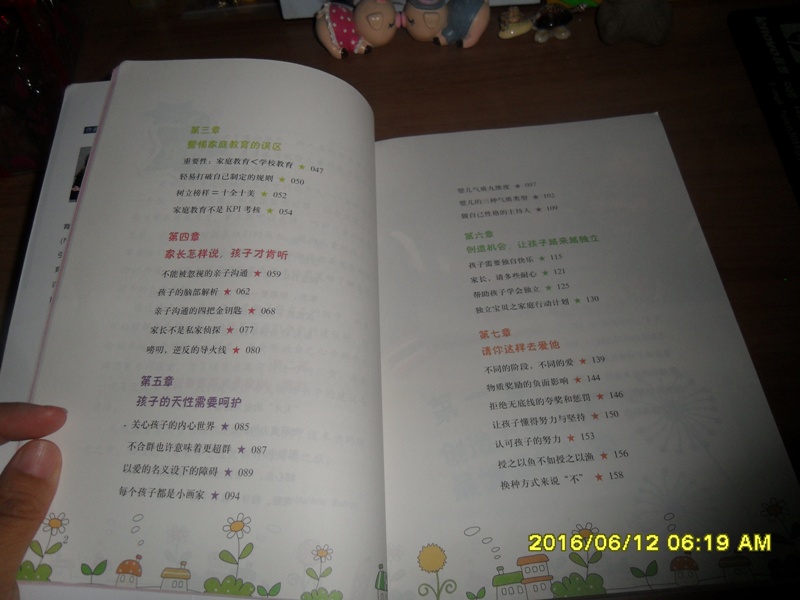 第三章
警惕家庭教育的误区
重要性：家庭教育<学校教育 ★ 047
轻易打破自己制定的规则 ★ 050
树立榜样=十全十美 ★ 052
家庭教育不是KPI考核 ★ 054
第四章
家长怎样说，孩子才肯听
不能被忽视的亲子沟通 ★ 059
孩子的脑部解析 ★ 062
亲子沟通的四把金钥匙 ★ 068
家长不是私家侦探 ★ 077
唠叨，逆反的导火线 ★ 080
第五章
孩子的天性需要呵护
关心孩子的内心世界 ★ 085
不合群也许意味着更超群 ★ 087
以爱的名义设下的障碍 ★ 089
每个孩子都是小画家 ★ 094
婴儿气质九维度 ★ 097
婴儿的三种气质类型 ★ 102
做自己性格的主持人 ★ 109
第六章
创造机会，让孩子越来越独立
孩子需要独自快乐 ★ 115
家长，请多些耐心 ★ 121
帮助孩子学会独立 ★ 125
独立宝贝之家庭行动计划 ★ 130
第七章
请你这样去爱他
不同的阶段，不同的爱 ★ 139
物质奖励的负面影响 ★ 144
拒绝无底线的夸奖和惩罚 ★ 146
让孩子懂得努力与坚持 ★ 150
认可孩子的努力 ★ 153
授之以鱼不如授之以渔 ★ 156
换种方式来说“不” ★ 158
2016/06/12 06:19 AM